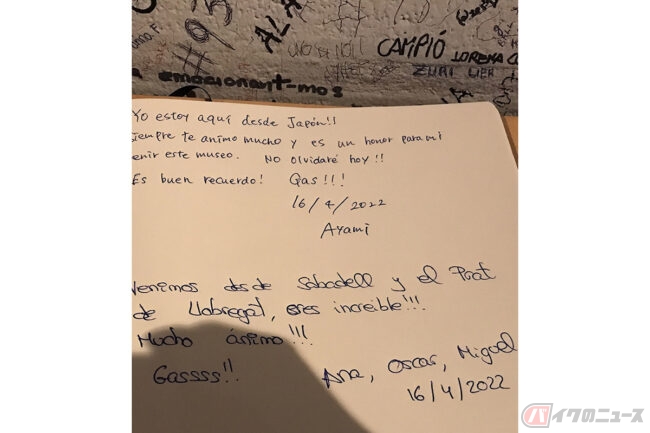 #93
CAMPIÓ
LORENA
ZURI
emocionant-mos
Yo estoy aquí desde Japón!!
siempre te animo mucho y es un honor para mi
enir este museo. No olvidaré hoy!!
Es buen recuerdo! Gas!!!
16/4/2022
Ayami
Venimos desde Sabadell y el Prat
de Llobregat, eres increible!!!
Mucho ánimo!!!
Gassss!! Ana, Oscar, Miguel
16/4/2022
バイクのニュース